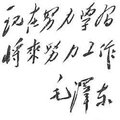 现在努力学习
将来努力工作
毛泽东